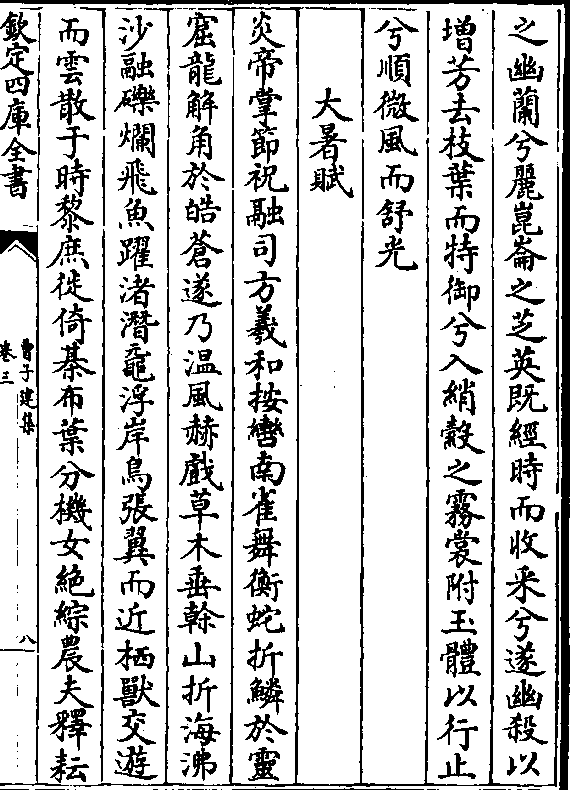 之幽蘭兮麗崑崙之芝英既經時而收采兮遂幽殺以
増芳去枝葉而特御兮入綃縠之霧裳附玉體以行止
兮順微風而舒光
大暑賦
炎帝掌節祝融司方羲和按轡南雀舞衡蛇折鱗於靈
窟龍解角於皓蒼遂乃温風赫戲草木垂幹山折海沸
沙融礫爛飛魚躍渚潛黿浮岸鳥張翼而近栖獸交遊
而雲散于時黎庶徙倚棊布葉分機女絶綜農夫釋耘
欽定四庫全書
曹子建集
卷三
八